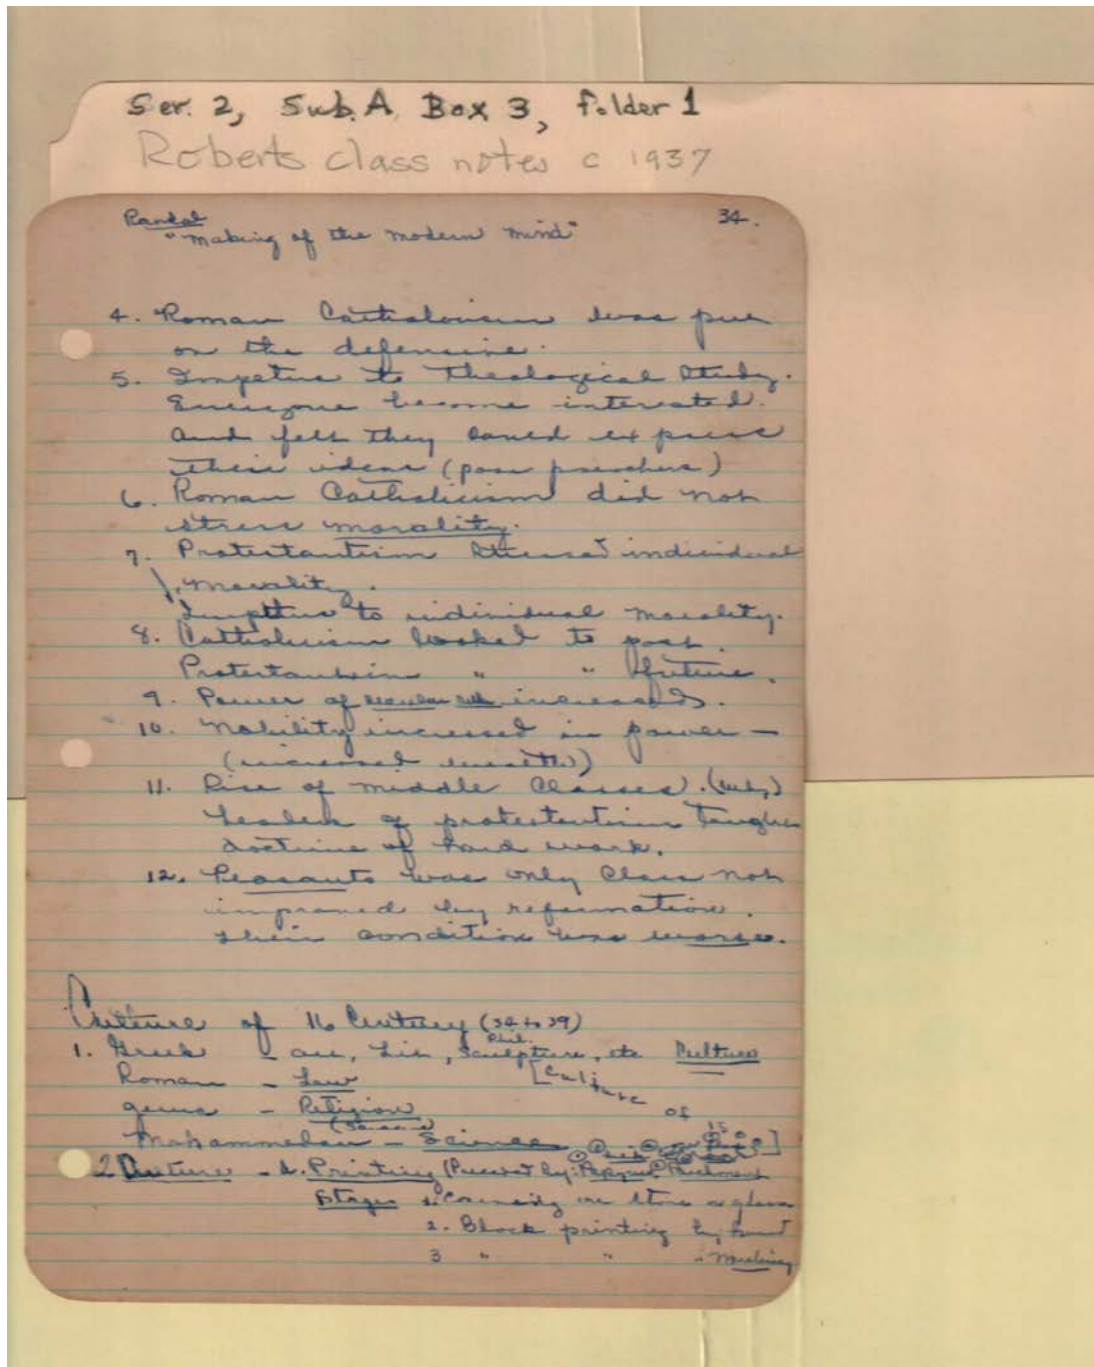 Ser. 2, Sub. A, Box 3, folder 1
Roberts class notes c 1937
Randal 34.
"Making of the modern mind"
4. Roman Catholousm was put
on the defensive.
5. Impetus to Theological Study.
Everyone became interested.
And felt they could express
their ideas (poor preachers)
6. Roman Catholicism did not
stress morality.
7. Protestantism stressed individual
morality.
Impetus to individual morality.
8. Catholicism looked to past.
Protestantism " " future.
9. Power of secular increased.
10. Nobility increased in power —
(increased wealth)
11. Rise of middle Classes.
Leaders of protestentism taught
doctrine of hard work.
12. Peasants was only Class not
improved by reformation.
their condition was worse.
Culture of 16 Century (34 to 39)
Phil.
1. Greek - art, Lit, Sculpture, etc Culture
Roman - Law [Culture
- Religion of
Mohammedan - Science 15
2 Culture - Printing (Preserved by: Papyrus Parchment
Stages 1. Carving on stone or
2. Block printing by hand
3 " " " Machinery